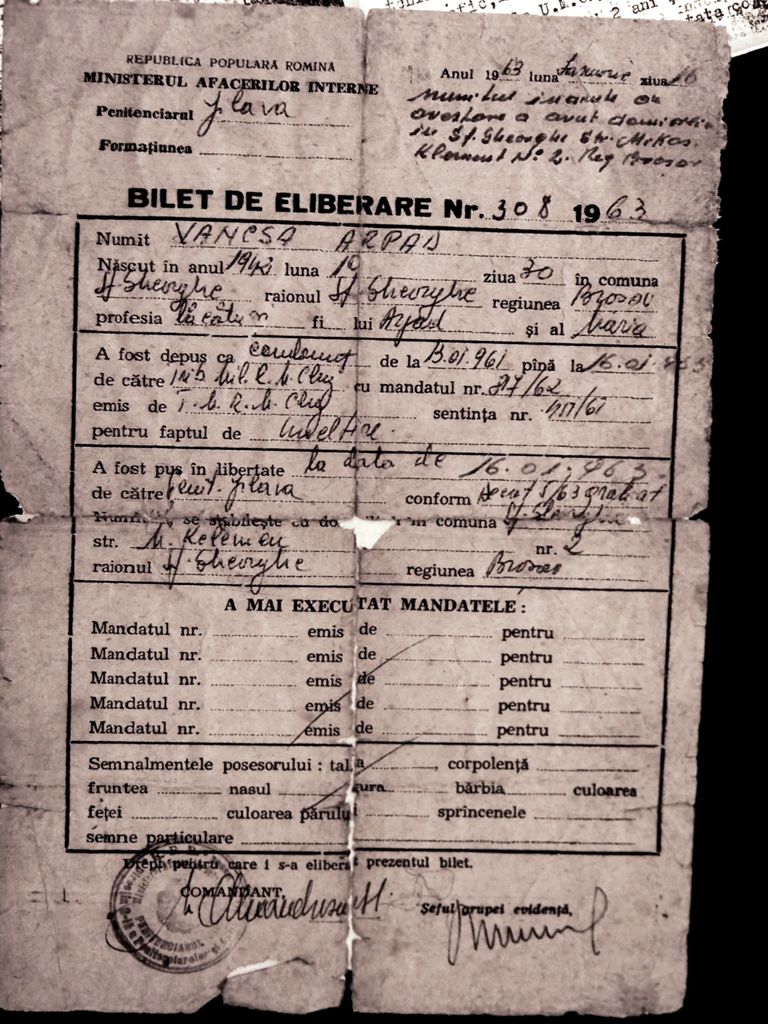 REPUBLICA POPULARA ROMINA
MINISTERUL AFACERILOR INTERNE
Penitenciarul Jilava
Formațiunea
Anul 1963 luna Ianuarie ziua 16
numitul inainte de
arestare a avut domiciliu
in Sf. Gheorghe Str. Mikes
Klement Nº 2. Reg Brasov
BILET DE ELIBERARE Nr. 308 1963
Numit VANCSA ARPAD
Născut în anul luna ziua 30 în comuna
Sf Gheorghe raionul Sf. Gheorghe regiunea Brasov
profesia lăcătuș fi lui Arpad și al Maria
A fost depus ca condamnat de la 13.01.961 pînă la 16.01.963
de către Trib Mil. R. M. Cluj cu mandatul nr. 87/62
emis de T. M. R. M. Cluj sentința nr.
pentru faptul de uneltire.
A fost pus în libertate la data de 16.01.963.
de către Penit. Jilava conform Decret 5/63 grațiat
se stabilește cu în comuna Sf Gheorghe
str. M. Kelemen nr. 2
raionul Sf. Gheorghe regiunea Brasov
A MAI EXECUTAT MANDATELE :
Mandatul nr. emis de pentru
Mandatul nr. emis de pentru
Mandatul nr. emis de pentru
Mandatul nr. emis de pentru
Mandatul nr. emis de pentru
Semnalmentele posesorului : talia , corpolență
fruntea nasul gura bărbia culoarea
feței culoarea părului sprîncenele
semne particulare
Drept pentru care i s-a eliberat prezentul bilet.
COMANDANT,
Șeful grupei evidență,
PENITENCIARUL